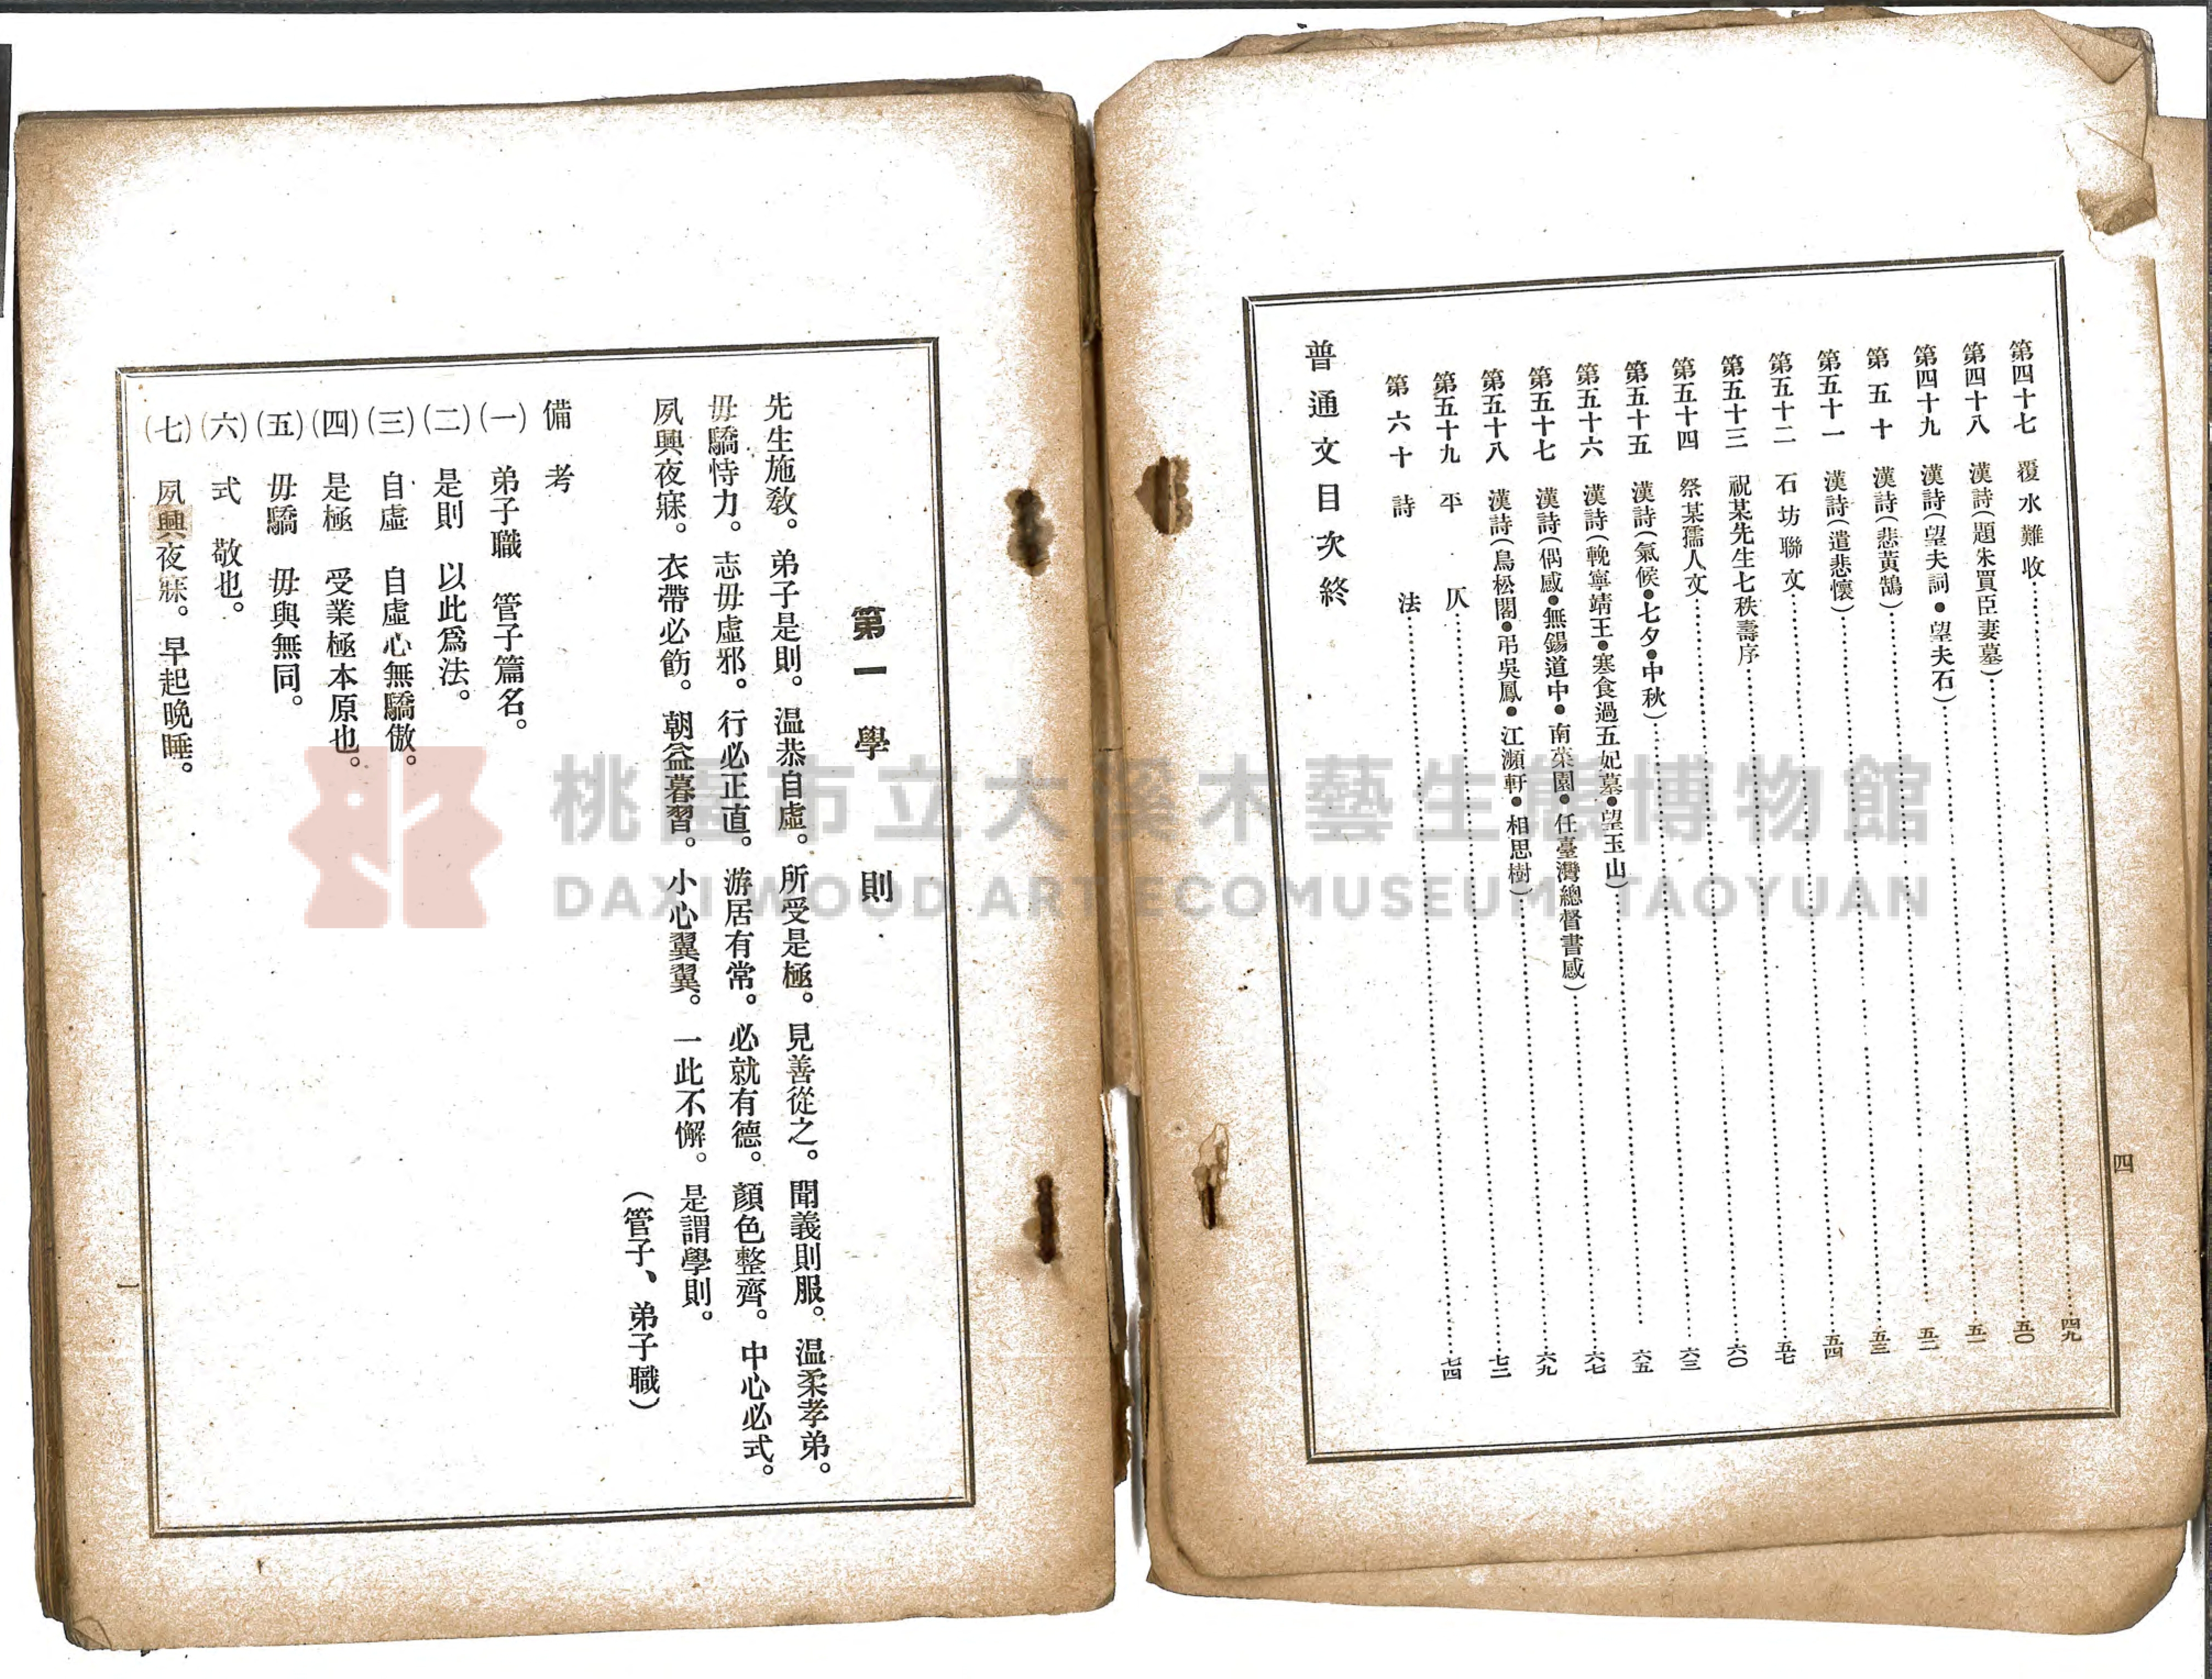 四
第四十七 覆水難收……四九
第四十八 漢詩(題朱買臣妻墓)……五〇
第四十九 漢詩(望夫詞•望夫石)……五一
第五十 漢詩(悲黃鵠)……五二
第五十一 漢詩(遣悲懷)……五三
第五十二 石坊聯文……五四
第五十三 祝某先生七秩壽序……五七
第五十四 祭某孺人文……六〇
第五十五 漢詩(氣候•七夕•中秋)……六三
第五十六 漢詩(輓寧靖王•寒食過五妃墓•望玉山)……六五
第五十七 漢詩(偶感•無錫道中•南菜園•任臺灣總督書感)……六七
第五十八 漢詩(鳥松閣•弔吳鳳•江瀕軒•相思樹)……六九
第五十九 平仄……七二
第六十 詩法……七四
普通文目次終
第一 學則
先生施敎。弟子是則。温恭自虛。所受是極。見善從之。聞義則服。温柔孝弟。
毋驕恃力。志毋虛邪。行必正直。游居有常。必就有德。顏色整齊。中心必式。
夙興夜寐。衣帶必飭。朝益暮習。小心翼翼。一此不懈。是謂學則。
(管子、弟子職)
備考
(一) 弟子職 管子篇名。
(二) 是則 以此爲法。
(三) 自虛 自虛心無驕傲。
(四) 是極 受業極本原也。
(五) 毋驕 毋與無同。
(六) 式 敬也。
(七) 夙興夜寐。早起晩睡。
一
桃園市立大溪木藝生態博物館
DAXI WOOD ART ECOMUSEUM, TAOYUAN